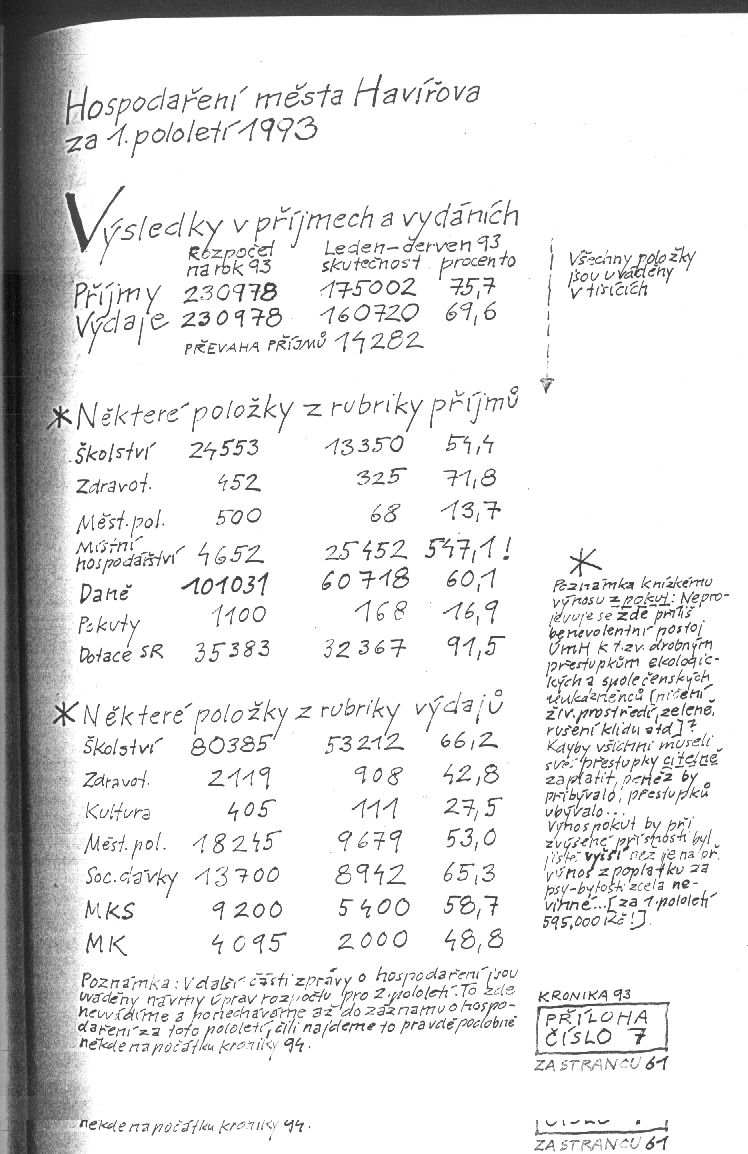 Hospodaření města Havířova
za 1. pololetí 1993
Výsledky v příjmech a vydáních
Rozpočet Leden-červen 93
na rok 93 skutečnost procento
Příjmy 230978 175002 75,7
Výdaje 230978 160720 69,6
PŘEVAHA PŘÍJMŮ 14282
Všechny položky
jsou uváděny
v tisících
* Některé položky z rubriky příjmů
Školství 24553 13350 54,4
Zdravot. 452 325 71,8
Měst.pol. 500 68 13,7
Místní
hospodářství 4652 25452 547,1!
Daně 101031 60718 60,1
Pokuty 1100 168 16,9
Dotace SR 35383 32367 91,5
* Některé položky z rubriky výdajů
Školství 80385 53212 66,2
Zdravot. 2119 908 42,8
Kultura 405 111 27,5
Měst.pol. 18245 9679 53,0
Soc.dávky 13700 8942 65,3
MKS 9200 5400 58,7
MK 4095 2000 48,8
Poznámka: V další části zprávy o hospodaření jsou
uváděny návrhy úprav rozpočtu pro 2.pololetí. To zde
neuvádíme a ponecháváme až do záznamu o hospo-
daření za toto pololetí, čili najdeme to pravděpodobně
někde na počátku kroniky 94.
*
Poznámka k nízkému
výnosu z pokut: Nepro-
jevuje se zde příliš
benevolentní postoj
ÚmH k tzv. drobným
přestupkům ekologic-
kých a společenských
neukázněnců [ničení
živ.prostředí, zeleně,
rušení klidu atd]?
Kdyby všichni museli
své přestupky citelně
zaplatit, peněz by
přibývalo, přestupků
ubývalo...
Výnos pokut by při
zvýšené přísnosti byl
jistě vyšší než je na př.
výnos z poplatku za
psy-bytosti zcela ne-
vinné...[za 1.pololetí
595,000 Kč!].
KRONIKA 93
PŘÍLOHA
ČÍSLO 7
ZA STRANOU 61
někde na počátku kroniky 94.
ZA STRANOU 61